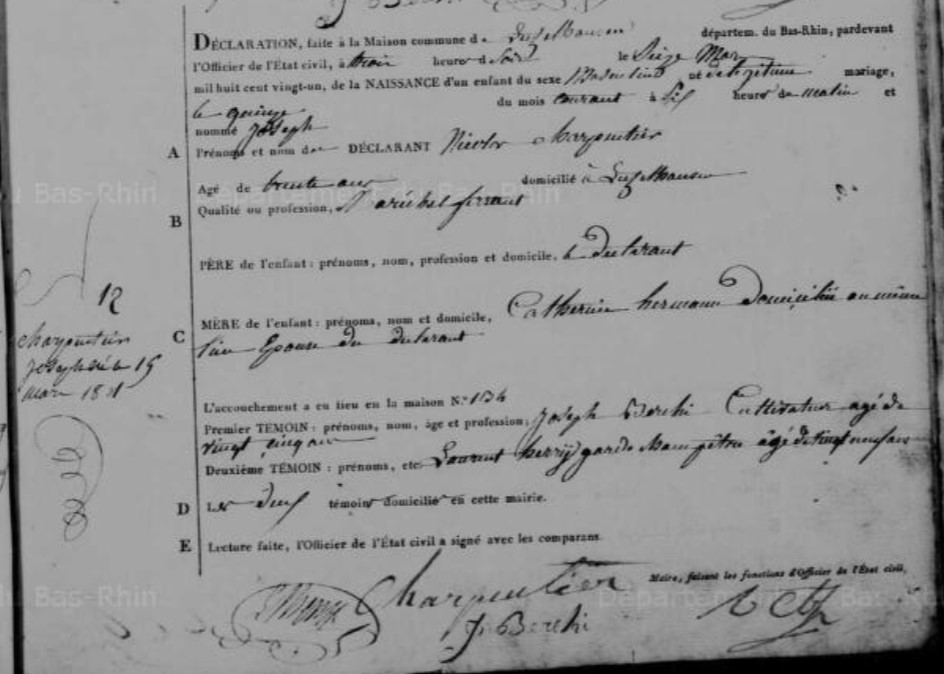 DÉCLARATION, faite à la Maison commune d départem. du Bas-Rhin, pardevant
l'Officier de l'État civil, à trois heures d Soir le Seize Mars
mil huit cent vingt-un, de la NAISSANCE d'un enfant du sexe Masculin né mariage,
le quinze du mois courant à Six heures de matin et
nommé Joseph
A Prénoms et nom du DÉCLARANT Nicolas Charpentier
Agé de trente ans domicilié à
B Qualité ou profession, Maréchal ferrant
PÈRE de l'enfant : prénoms, nom, profession et domicile, le declarant
12
C MÈRE de l'enfant : prénoms, nom et domicile, Catherine hermann Domiciliée au même
lieu Epouse du declarant
Charpentier
Joseph né le 15
mars 1821
L'accouchement a eu lieu en la maison N.º 134
Premier TÉMOIN : prénoms, nom, âge et profession, Joseph Berchi Cultivateur agé de
vingt cinq ans
Deuxième TÉMOIN : prénoms, etc. Laurent garde Champêtre âgé de vingt neuf ans
D Les deux témoins domiciliés en cette mairie.
E Lecture faite, l'Officier de l'État civil a signé avec les comparans.
Maire, faisant les fonctions d'Officier de l'État civil,
Charpentier
J. Berchi
u Bas-Rhin
Département du Bas-Rhin
du Bas-Rhin
Département
Bas-Rhin